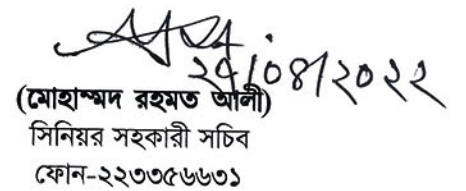 ২৫/০৪/২০২২
(মোহাম্মদ রহমত আলী)
সিনিয়র সহকারী সচিব
ফোন-২২৩৩৫৬৬৩১